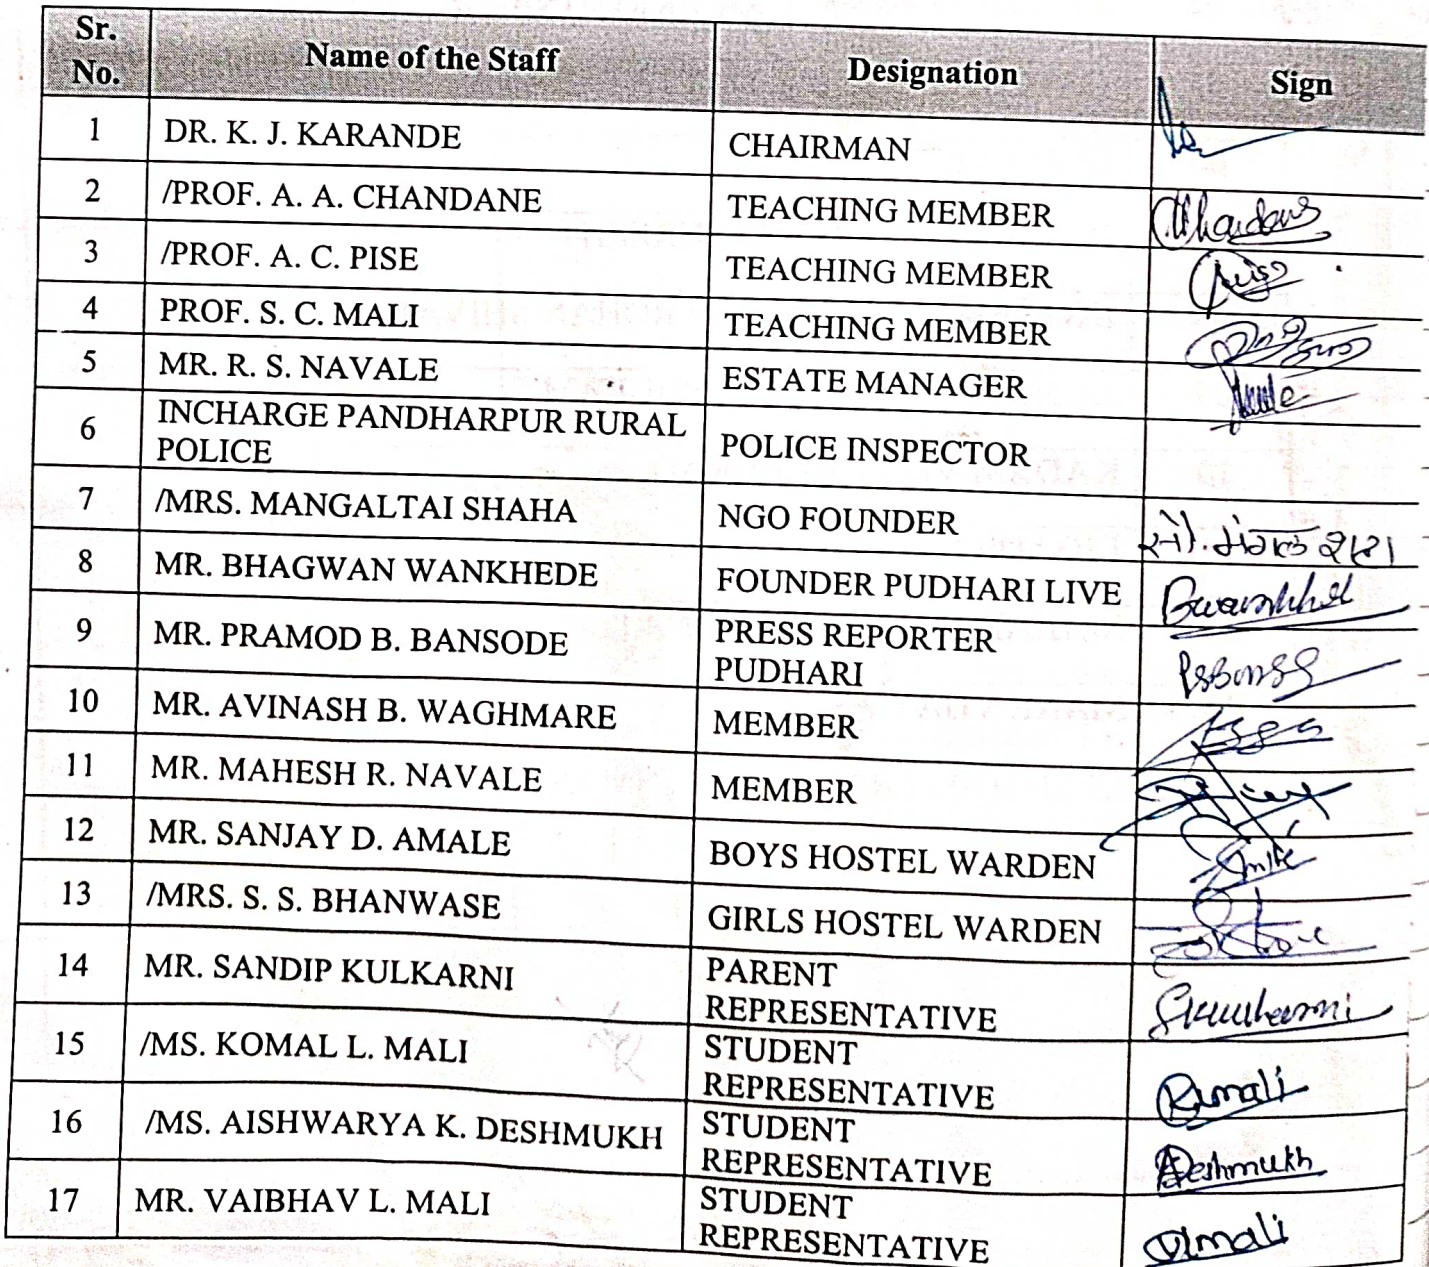 Sr. No. Name of the Staff Designation Sign
1 DR. K. J. KARANDE CHAIRMAN
2 /PROF. A. A. CHANDANE TEACHING MEMBER
3 /PROF. A. C. PISE TEACHING MEMBER
4 PROF. S. C. MALI TEACHING MEMBER
5 MR. R. S. NAVALE ESTATE MANAGER
6 INCHARGE PANDHARPUR RURAL
POLICE POLICE INSPECTOR
7 /MRS. MANGALTAI SHAHA NGO FOUNDER सौ. मंगल शहा
8 MR. BHAGWAN WANKHEDE FOUNDER PUDHARI LIVE
9 MR. PRAMOD B. BANSODE PRESS REPORTER
PUDHARI
10 MR. AVINASH B. WAGHMARE MEMBER
11 MR. MAHESH R. NAVALE MEMBER
12 MR. SANJAY D. AMALE BOYS HOSTEL WARDEN
13 /MRS. S. S. BHANWASE GIRLS HOSTEL WARDEN
14 MR. SANDIP KULKARNI PARENT
REPRESENTATIVE
15 /MS. KOMAL L. MALI STUDENT
REPRESENTATIVE
16 /MS. AISHWARYA K. DESHMUKH STUDENT
REPRESENTATIVE Deshmukh
17 MR. VAIBHAV L. MALI STUDENT
REPRESENTATIVE